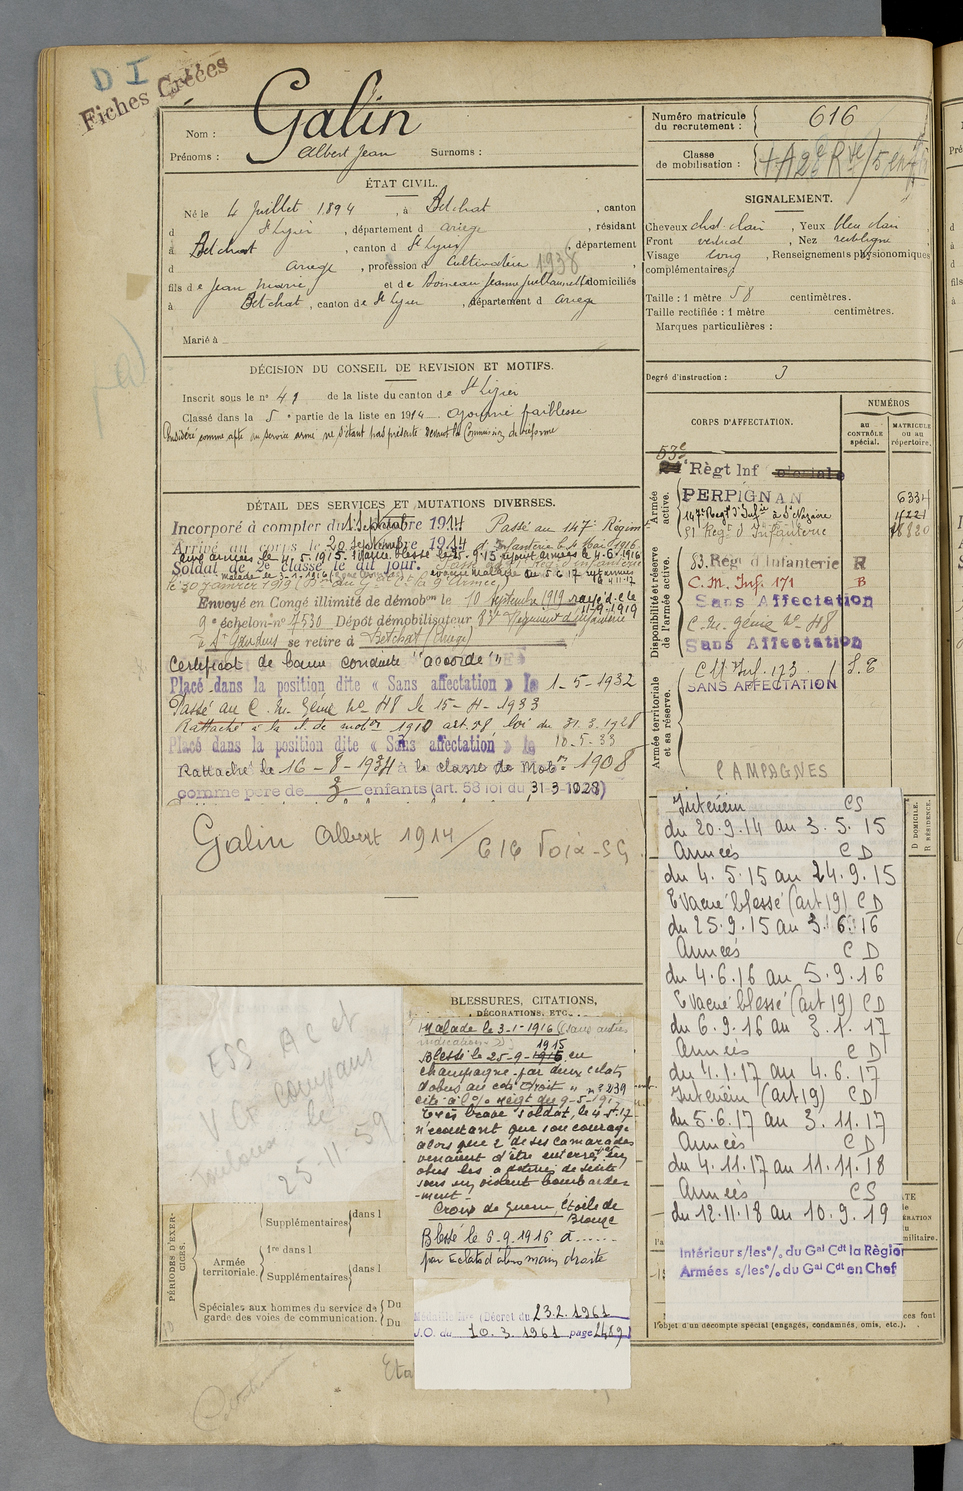 D I
Fiches Créées
Nom : Galin
Prénoms : Albert Jean Surnoms :
Numéro matricule du recrutement : 616
Classe de mobilisation :
ÉTAT CIVIL.
Né le 4 Juillet 1894, à Betchat, canton
d St Lizier, département d Ariège, résidant
à Betchat, canton d St Lizier, département
d Ariège, profession d Cultivateur 1938
fils de Jean Marie et de Jeanne domiciliés
à Betchat, canton de St Lizier, département d Ariège
Marié à
SIGNALEMENT.
Cheveux chat. clair, Yeux bleu clair
Front vertical, Nez rectiligne
Visage long, Renseignements physionomiques
complémentaires :
Taille : 1 mètre 58 centimètres.
Taille rectifiée : 1 mètre centimètres.
Marques particulières :
Degré d'instruction : 3
DÉCISION DU CONSEIL DE REVISION ET MOTIFS.
Inscrit sous le n° 41 de la liste du canton de St Lizier
Classé dans la 5e partie de la liste en 1914 ajourné faiblesse
Considéré comme apte au service armé ne s'étant pas présenté devant la Commission de réforme
CORPS D'AFFECTATION.
NUMÉROS
au CONTRÔLE spécial.
MATRICULE ou au répertoire.
Armée active.
53e
Règt Inf
PERPIGNAN 6334
147e Regt d'Infie à St Nazaire 11221
81 Regt d'Infanterie
Disponibilité et réserve de l'armée active.
83. Regt d'Infanterie R
C. M. Inf. 171 B
Sans Affectation
C. M. Génie No 48
Sans Affectation
Armée territoriale et sa réserve.
C M Inf. 173
SANS AFFECTATION
DÉTAIL DES SERVICES ET MUTATIONS DIVERSES.
Incorporé à compter du 1914 Passé au 147e Régim
Arrivé au corps le 20 septembre 1914 d'Infanterie le 4 Mai 1916
Aux armées le 4.5.1915. Evacué blessé le 25.9.15 rejoint armées le 4.6.1916
Soldat de 2e classe le dit jour.
Envoyé en Congé illimité de démobon le 10 Septembre 1919
9e échelon n° 7530 Dépôt démobilisateur 83e Régiment d'Infanterie
à St Gaudens se retire à Betchat (Ariège)
Certificat de bonne conduite "accordé"
Placé dans la position dite « Sans affectation » le 1-5-1932
Passé au C. M. Génie No 48 le 15-4-1933
Rattaché à la cl. de mobon 1910 art. 58 loi du 31.3.1928
Placé dans la position dite « Sans affectation » le 10-5-33
Rattaché le 16-8-1934 à la classe de Mobon 1908
comme père de 3 enfants (art. 58 loi du 31 3 1928)
Galin Albert 1914 / 616 Foix-SG
CAMPAGNES
Intérieur CS
du 20.9.14 au 3.5.15
Armées CD
du 4.5.15 au 24.9.15
Evacué blessé (art 19) CD
du 25.9.15 au 3.6.16
Armées CD
du 4.6.16 au 5.9.16
Evacué blessé (art 19) CD
du 6.9.16 au 3.1.17
Armées CD
du 4.1.17 au 4.6.17
Intérieur (art 19) CD
du 5.6.17 au 3.11.17
Armées CD
du 4.11.17 au 11.11.18
Armées CS
du 12.11.18 au 10.9.19
Intérieur s/les % du Gal Cdt la Région
Armées s/les % du Gal Cdt en Chef
D DOMICILE.
R RÉSIDENCE.
l'objet d'un décompte spécial (engagés, condamnés, omis, etc.).
ESS AC et
V Ct campans
Toulouse le
25-11-59
BLESSURES, CITATIONS,
DÉCORATIONS, ETC.
Malade le 3-1-1916 (sans autres
indication
1915
Blessé le 25-9-1916 en
champagne par deux éclats
d'obus au côté droit
cité à l'o/ Régt du 9-5-1917
Très brave soldat, le 4-5-17
n'écoutant que son courage
alors que 2 de ses camarades
venaient d'être enterrés
sous un violent bombarde-
-ment-
Croix de Guerre, Étoile de
Bronze
Blessé le 6-9-1916 à......
par éclats d'obus main droite
Décret du 23.2.1961
J.O. du 10.3.1961 page 2489
PÉRIODES D'EXERCICES.
Supplémentaires dans l
Armée territoriale. 1re dans l
Supplémentaires dans l
Spéciales aux hommes du service de garde des voies de communication. Du
Du